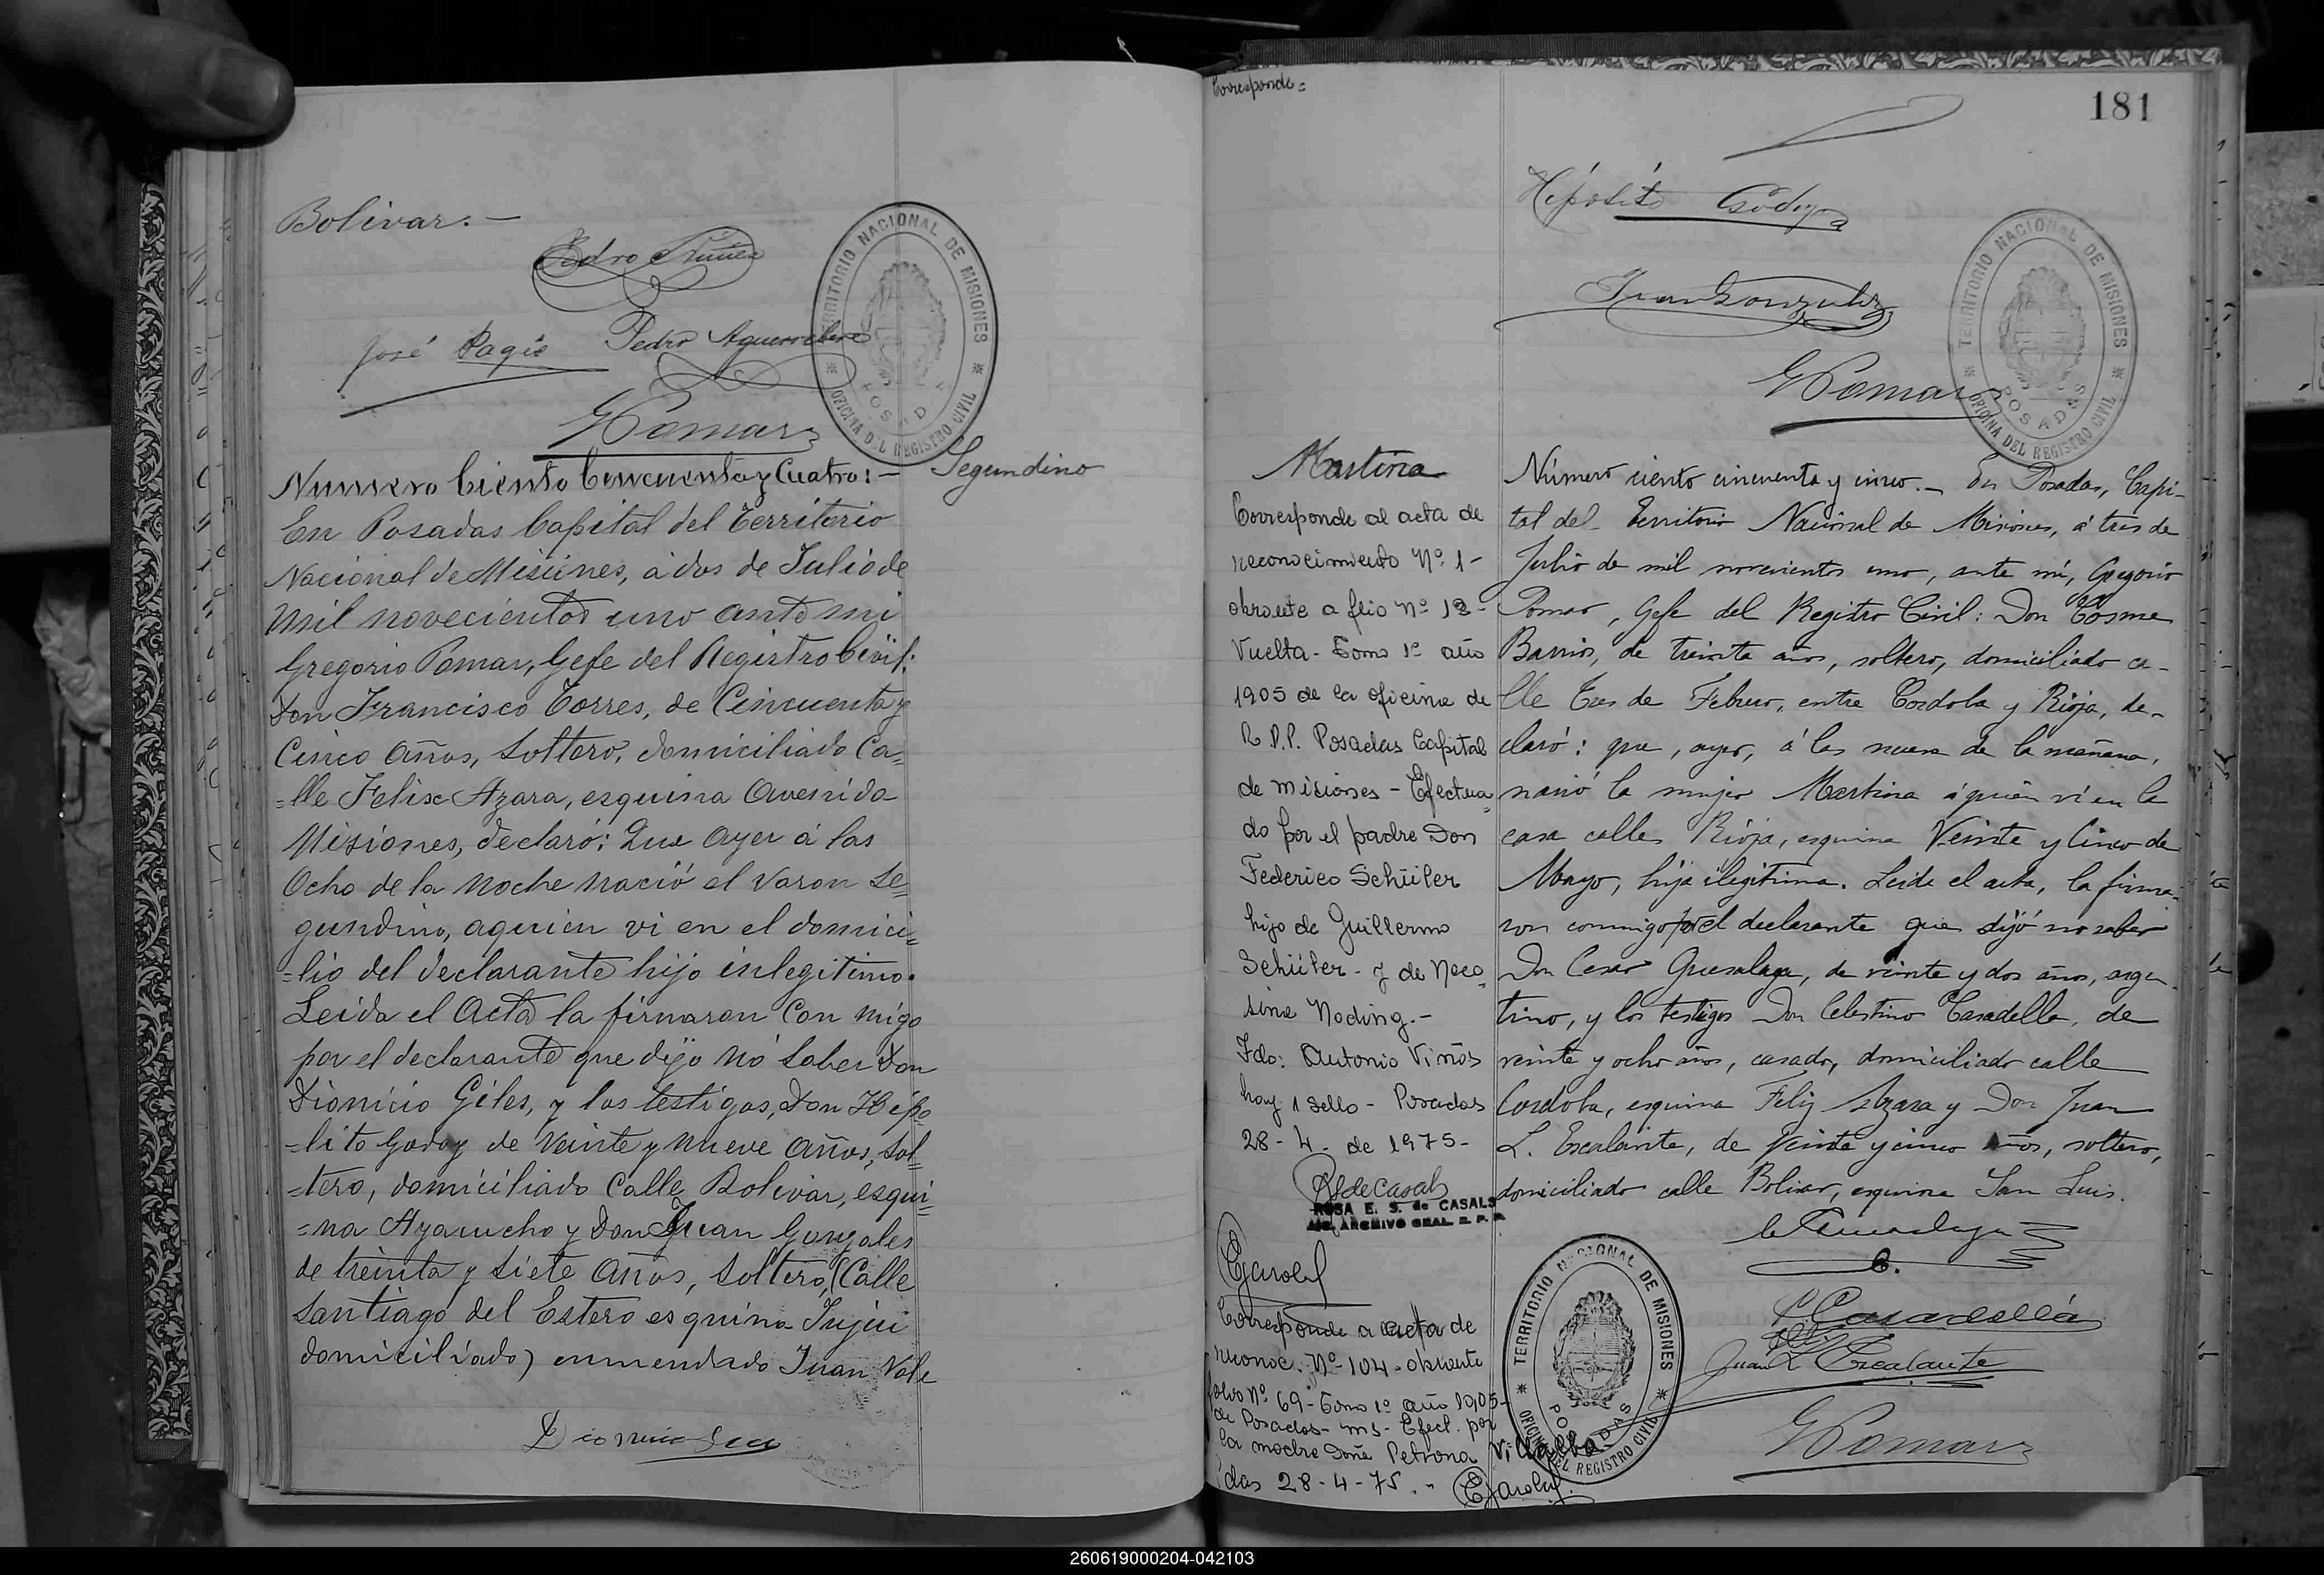 Bolivar.-
Pedro Nuñez
José Pagés Pedro Aguirre
GPomar
TERRITORIO NACIONAL DE MISIONES
POSADAS
OFICINA DEL REGISTRO CIVIL
Segundino
Numero Ciento Cincuenta y Cuatro:-
En Posadas Capital del Territorio
Nacional de Misiones, á dos de Julio de
mil novecientos uno ante mi
Gregorio Pomar, Gefe del Registro Civil:
Don Francisco Torres, de Cincuenta y
Cinco años, Soltero, domiciliado Ca=
=lle Felix Azara, esquina Avenida
Misiones, declaró: Que ayer á las
Ocho de la noche nació el varon Se=
gundino, aquien vi en el domici=
=lio del declarante hijo inlegitimo.
Leida el Acta la firmaron Con migo
por el declarante que dijo nó Saber Don
Dionicio Giles, y los testigos, Don Hipo
=lito Godoy de Veinte y nueve años, Sol=
=tero, domiciliado Calle Bolivar, esqui=
=na Ayacucho y Don Juan Gonzales
de treinta y siete años, Soltero, (Calle
Santiago del Estero esquina Jujui
domiciliado) enmendado Juan Vale
Corresponde=
181
Hipólito Godoy
Juan Gonzalez
GPomar
TERRITORIO NACIONAL DE MISIONES
POSADAS
OFICINA DEL REGISTRO CIVIL
Martina
Corresponde al acta de
reconocimiento Nº 1-
obrante a flio Nº 12-
Vuelta- Tomo 1º año
1905 de la oficina de
R.P.P. Posadas Capital
de misiones - Efectua=
do por el padre Don
Federico Schüiler
hijo de Guillermo
Schüiler- y de Neco=
sina Noding.-
Fdo: Antonio Viñas
hay 1 sello - Posadas
28-4- de 1975-
RSdeCasals
ROSA E. S. de CASALS
ARCHIVO GRAL. R. P. P.
Corresponde al acta de
reconoc. Nº 104- obrante
folio Nº 69- Tomo 1º año 1905-
de Posados- ms- Efect. por
la madre Doña Petrona Villalba
Pdas 28-4-75.-
Número ciento cincuenta y cinco.- En Posadas, Capi-
tal del Territorio Nacional de Misiones, á tres de
Julio de mil novecientos uno, ante mí, Gregorio
Pomar, Gefe del Registro Civil: Don Cosme
Barrios, de treinta años, soltero, domiciliado ca-
lle Tres de Febrero, entre Cordoba y Rioja, de-
claró: que, ayer, á las nueve de la mañana,
nació la mujer Martina á quien ví en la
casa calle Rioja, esquina Veinte y Cinco de
Mayo, hija ilegitima. Leida el acta, la firma-
ron conmigo por el declarante que dijó no saber
Don Cesar Guesalaga, de veinte y dos años, argen-
tino, y los testigos Don Celestino Casadella, de
veinte y ocho años, casado, domiciliado calle
Cordoba, esquina Feliz Azara y Don Juan
L. Escalante, de veinte y cinco años, soltero,
domiciliado calle Bolivar, esquina San Luis.
C Guesalaga
C Casadellá
Juan L Escalante
GPomar
TERRITORIO NACIONAL DE MISIONES
POSADAS
OFICINA DEL REGISTRO CIVIL
260619000204-042103